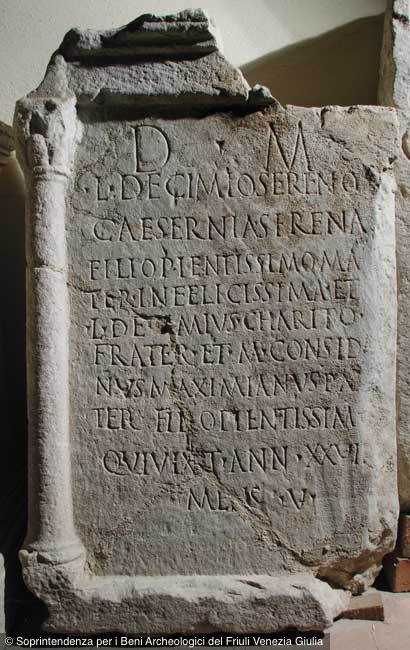 D · M
· L · DECIMIO SERENO
CAESERNIA SERENA
FILIO PIENTISSIMO MA
TER INFELICISSIMA ET
L · DE MIVS CHARITO ·
FRATER · ET · M · CONSID
NVS MAXIMIANVS PA
TER FIL O PIENTISSIM
QVI VIX T · ANN · XXVI
ME S · V ·
© Soprintendenza per i Beni Archeologici del Friuli Venezia Giulia